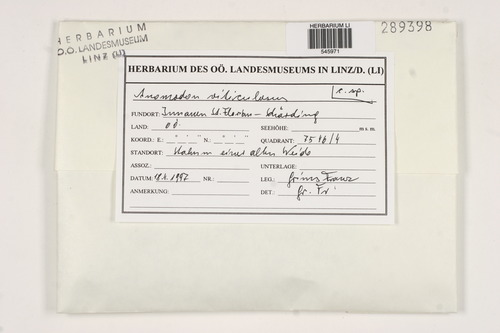 HERBARIUM
O.Ö. LANDESMUSEUM
LINZ (LI)
HERBARIUM LI
545971
289398
HERBARIUM DES OÖ. LANDESMUSEUMS IN LINZ/D. (LI)
Anomodon viticulosus c. sp.
FUNDORT: Innauen St. Florian - Schärding
LAND: OÖ SEEHÖHE: m s. m.
KOORD.: E: ° ' " N: ° ' " QUADRANT: 7546/4
STANDORT: Stamm einer alten Weide
ASSOZ.: UNTERLAGE:
DATUM: 18.4.1987 NR.: LEG.: Grims Franz
ANMERKUNG: DET.: Gr. Fr.